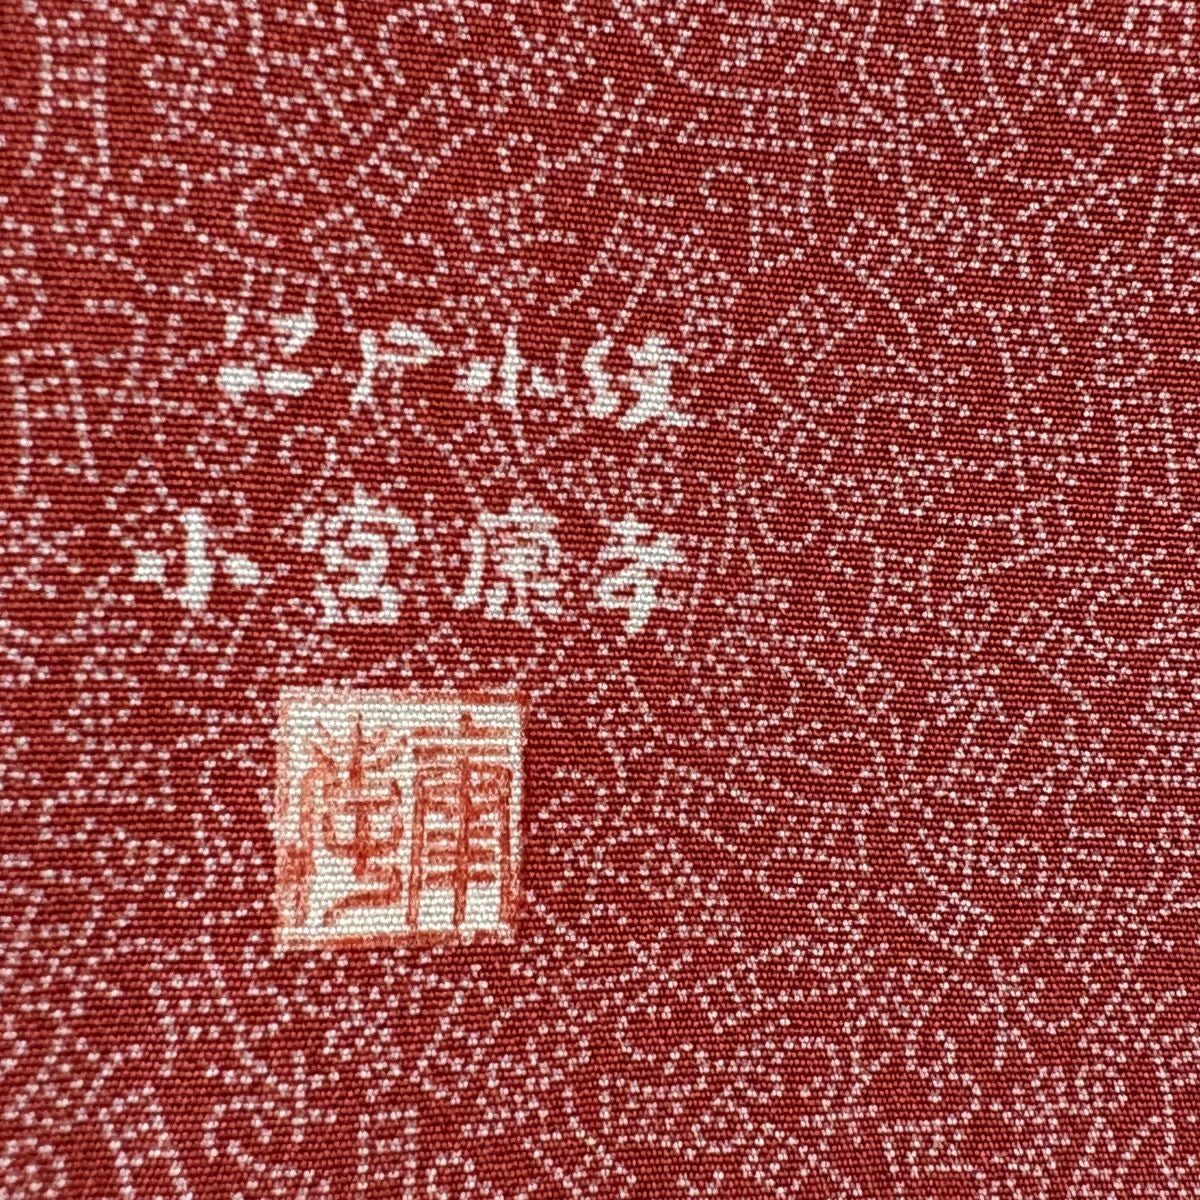 江戸小紋
小宮康孝